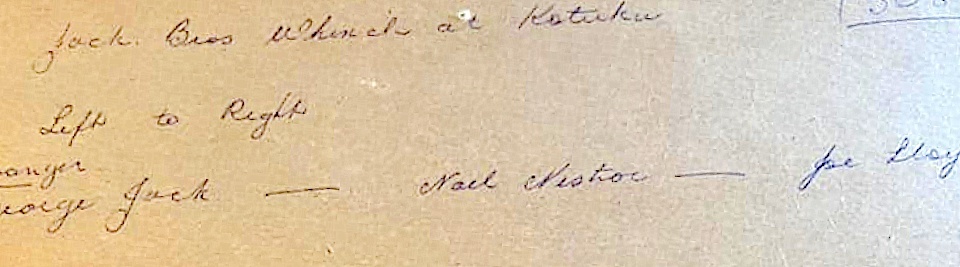 Jack. Bros Whinch at Kotuku
Left to Right
George Jack — Noel Nestor — Joe Lloy